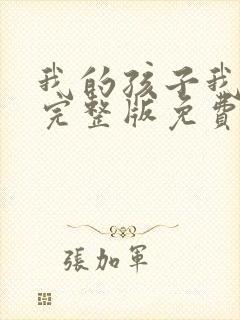 我的孩子我
完整版免費
張加軍